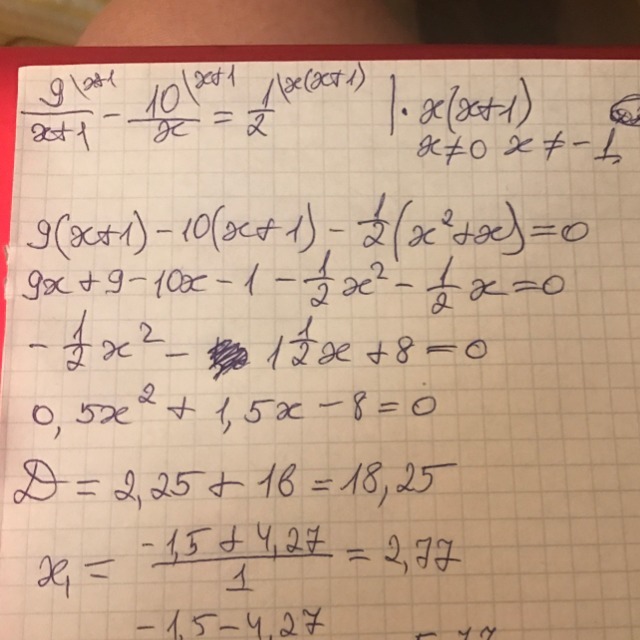 9\x+1/x+1 - 10\x+1/x = 1\x(x+1)/2 | · x(x+1)
x≠0 x≠-1
9(x+1)-10(x+1)-1/2(x²+x)=0
9x+9-10x-1-1/2x²-1/2x=0
-1/2x²- 1 1/2x+8=0
0,5x²+1,5x-8=0
D=2,25+16=18,25
x₁=-1,5+4,27/1=2,77
-1,5-4,27